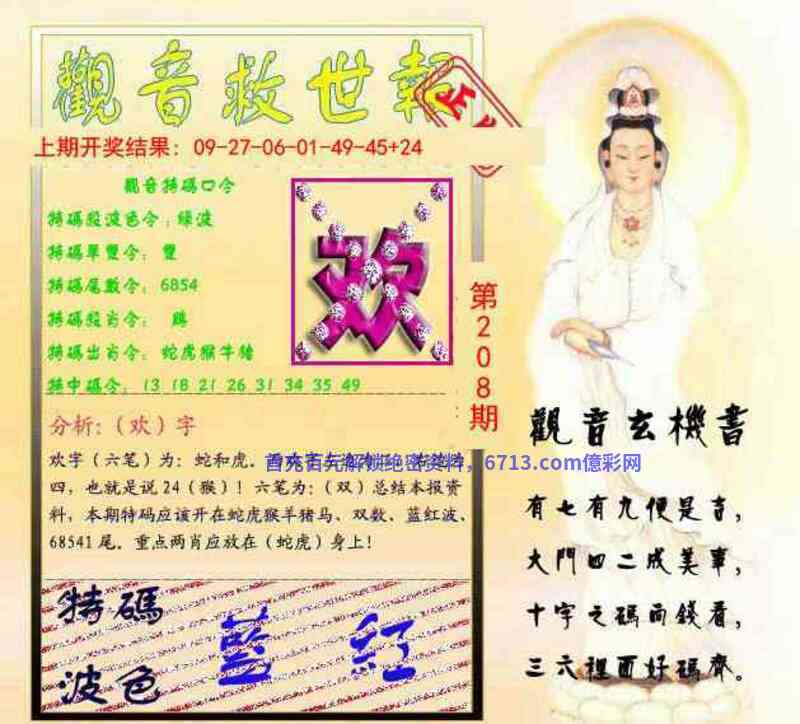 觀音救世報
上期开奖结果：09-27-06-01-49-45+24
觀音特碼口令
特碼殺波色令：綠波
特碼單雙令：雙
特碼尾數令：6854
特碼殺肖令：鷄
特碼出肖令：蛇虎猴牛猪
特中碼令：13 18 21 26 31 34 35 49
欢
第208期
分析：（欢）字
欢字（六笔）为：蛇和虎．
四，也就是说24（猴）！六笔为：（双）总结本报资
料，本期特码应该开在蛇虎猴羊猪马、双数、蓝红波、
68541尾．重点两肖应放在（蛇虎）身上！
首充百元解锁绝密资料，6713.com億彩网
特碼
波色
藍 紅
觀音玄機書
有七有九便是吉，
大門四二成美事，
十字之碼向錢看，
三六裡面好碼齊。